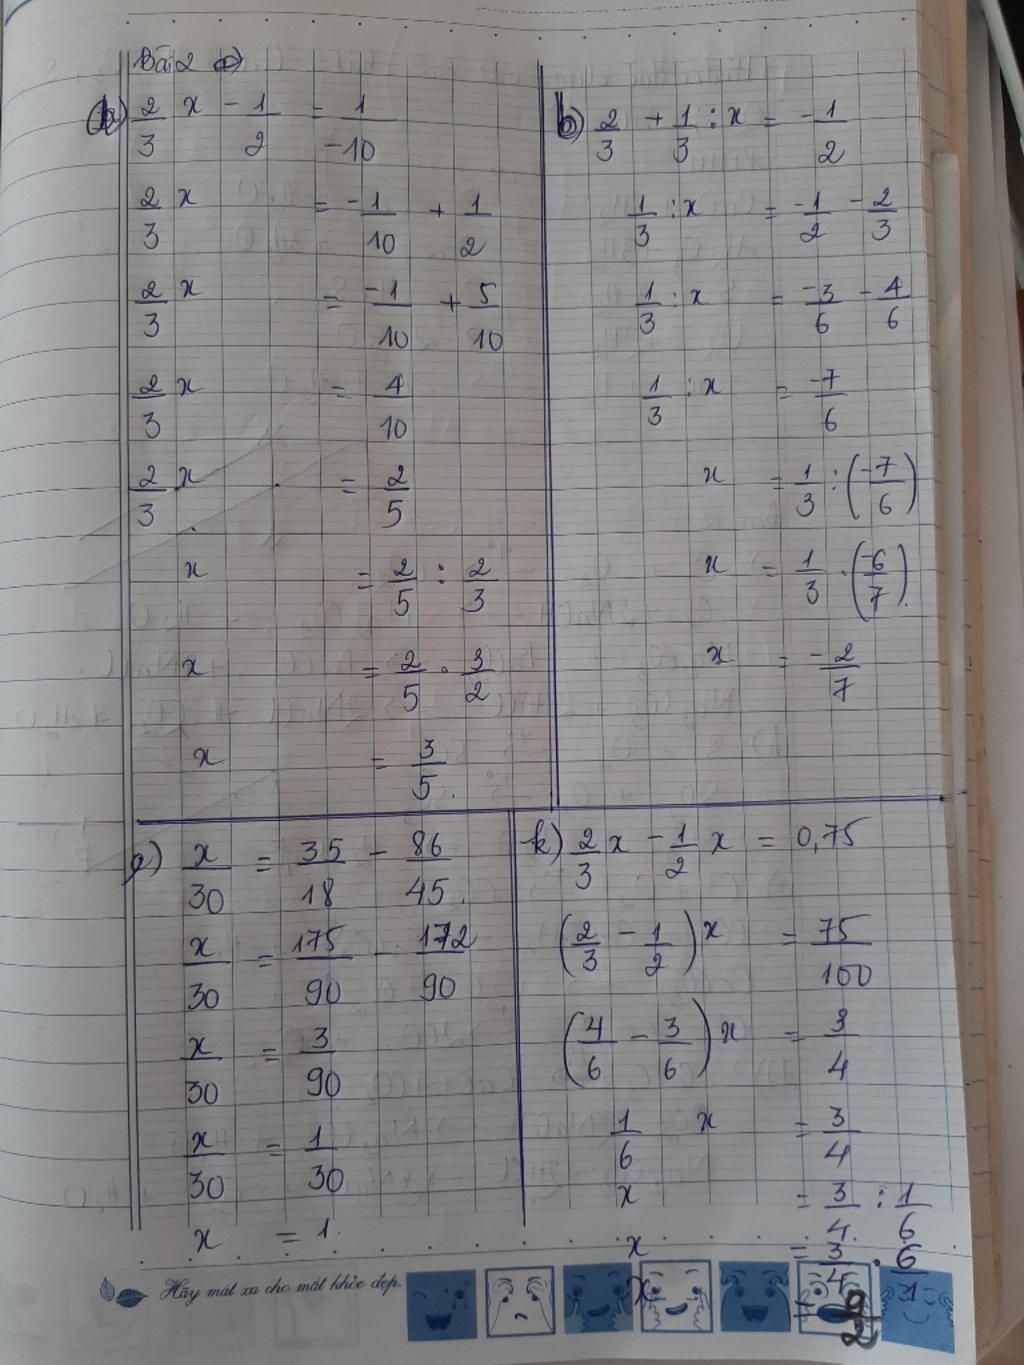 Bài 2
a) 2/3 x - 1/2 = 1/-10
2/3 x = -1/10 + 1/2
2/3 x = -1/10 + 5/10
2/3 x = 4/10
2/3 x = 2/5
x = 2/5 : 2/3
x = 2/5 . 3/2
x = 3/5.
b) 2/3 + 1/3 : x = -1/2
1/3 : x = -1/2 - 2/3
1/3 : x = -3/6 - 4/6
1/3 : x = -7/6
x = 1/3 : (-7/6)
x = 1/3 . (-6/7).
x = -2/7
g) x/30 = 35/18 - 86/45.
x/30 = 175/90 - 172/90
x/30 = 3/90
x/30 = 1/30
x = 1.
k) 2/3 x - 1/2 x = 0,75
(2/3 - 1/2) x = 75/100
(4/6 - 3/6) x = 3/4
1/6 x = 3/4
x = 3/4 : 1/6
x = 3/4 . 6/1
x = 9/2
Hãy mát xa cho mắt khỏe đẹp.